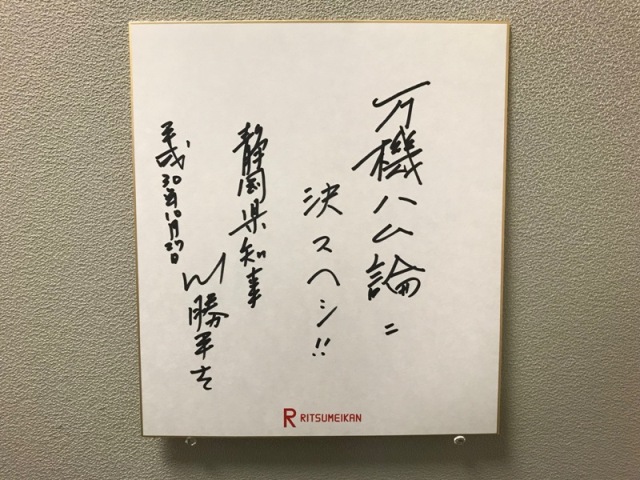 万機ハ公論ニ
決スヘシ!!
静岡県知事
川勝平太
平成30年10月27日
R RITSUMEIKAN